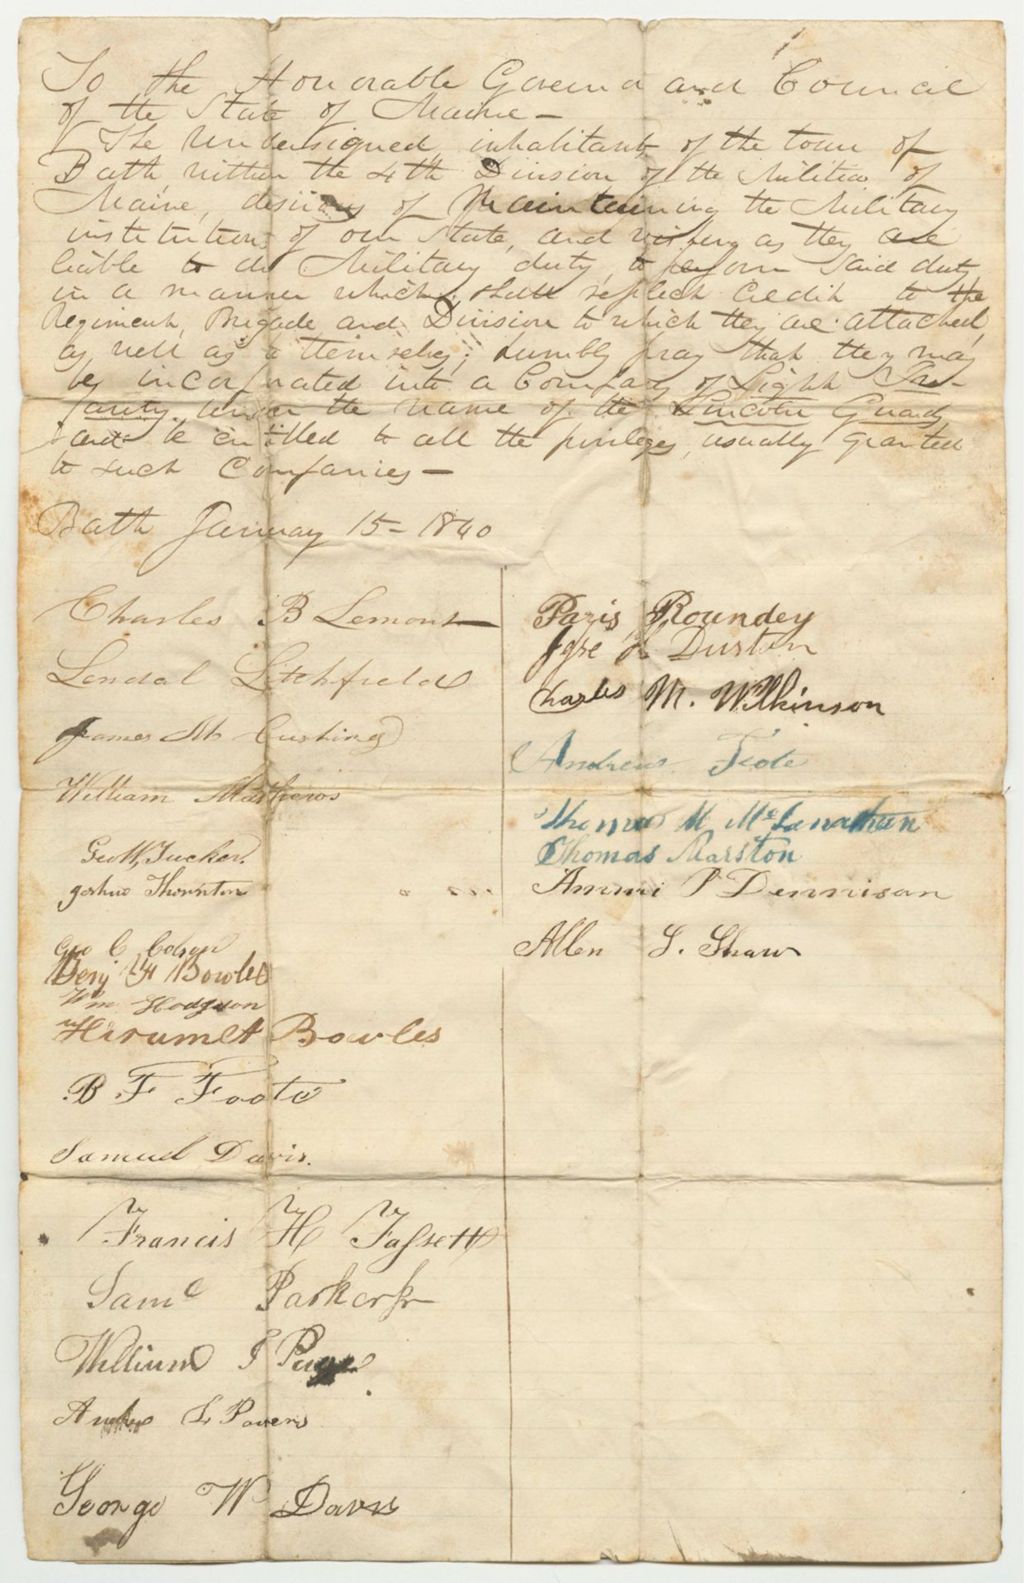 To the Honorable Governor and Council
of the State of Maine —
The Undersigned, inhabitants of the town of
Bath, within the 4th Division of the Militia of
Maine, desirous of Maintaining the Military
institutions of our State, and wishing as they are
liable to do Military duty, to perform said duty
in a manner which shall reflect credit to the
Regiment, Brigade and Division to which they are attached,
as well as themselves; humbly pray that they may
be incorporated into a Company of Light In-
fantry under the name of the Lincoln Guards
and be entitled to all the privileges, usually granted
to such Companies —
Bath January 15 - 1840
Charles B Lemont
Lendal Litchfield
James M Cushing
William Mathews
Geo W, Tucker.
Joshua Thornton
Geo C Colson
Benj F Bowles
Wm Hodgson
Hiram Bowles
B F Foote
Samuel Davis.
Francis H Fassett
Saml Parker Jr
William J Page
L Powers
George W Davis
Paris Roundey
Jesse Dustin
Charles M. Wilkinson
Andrew Foote
Thomas M McLanathan
Thomas Marston
Ammi P Dennison
Allen S. Shaw